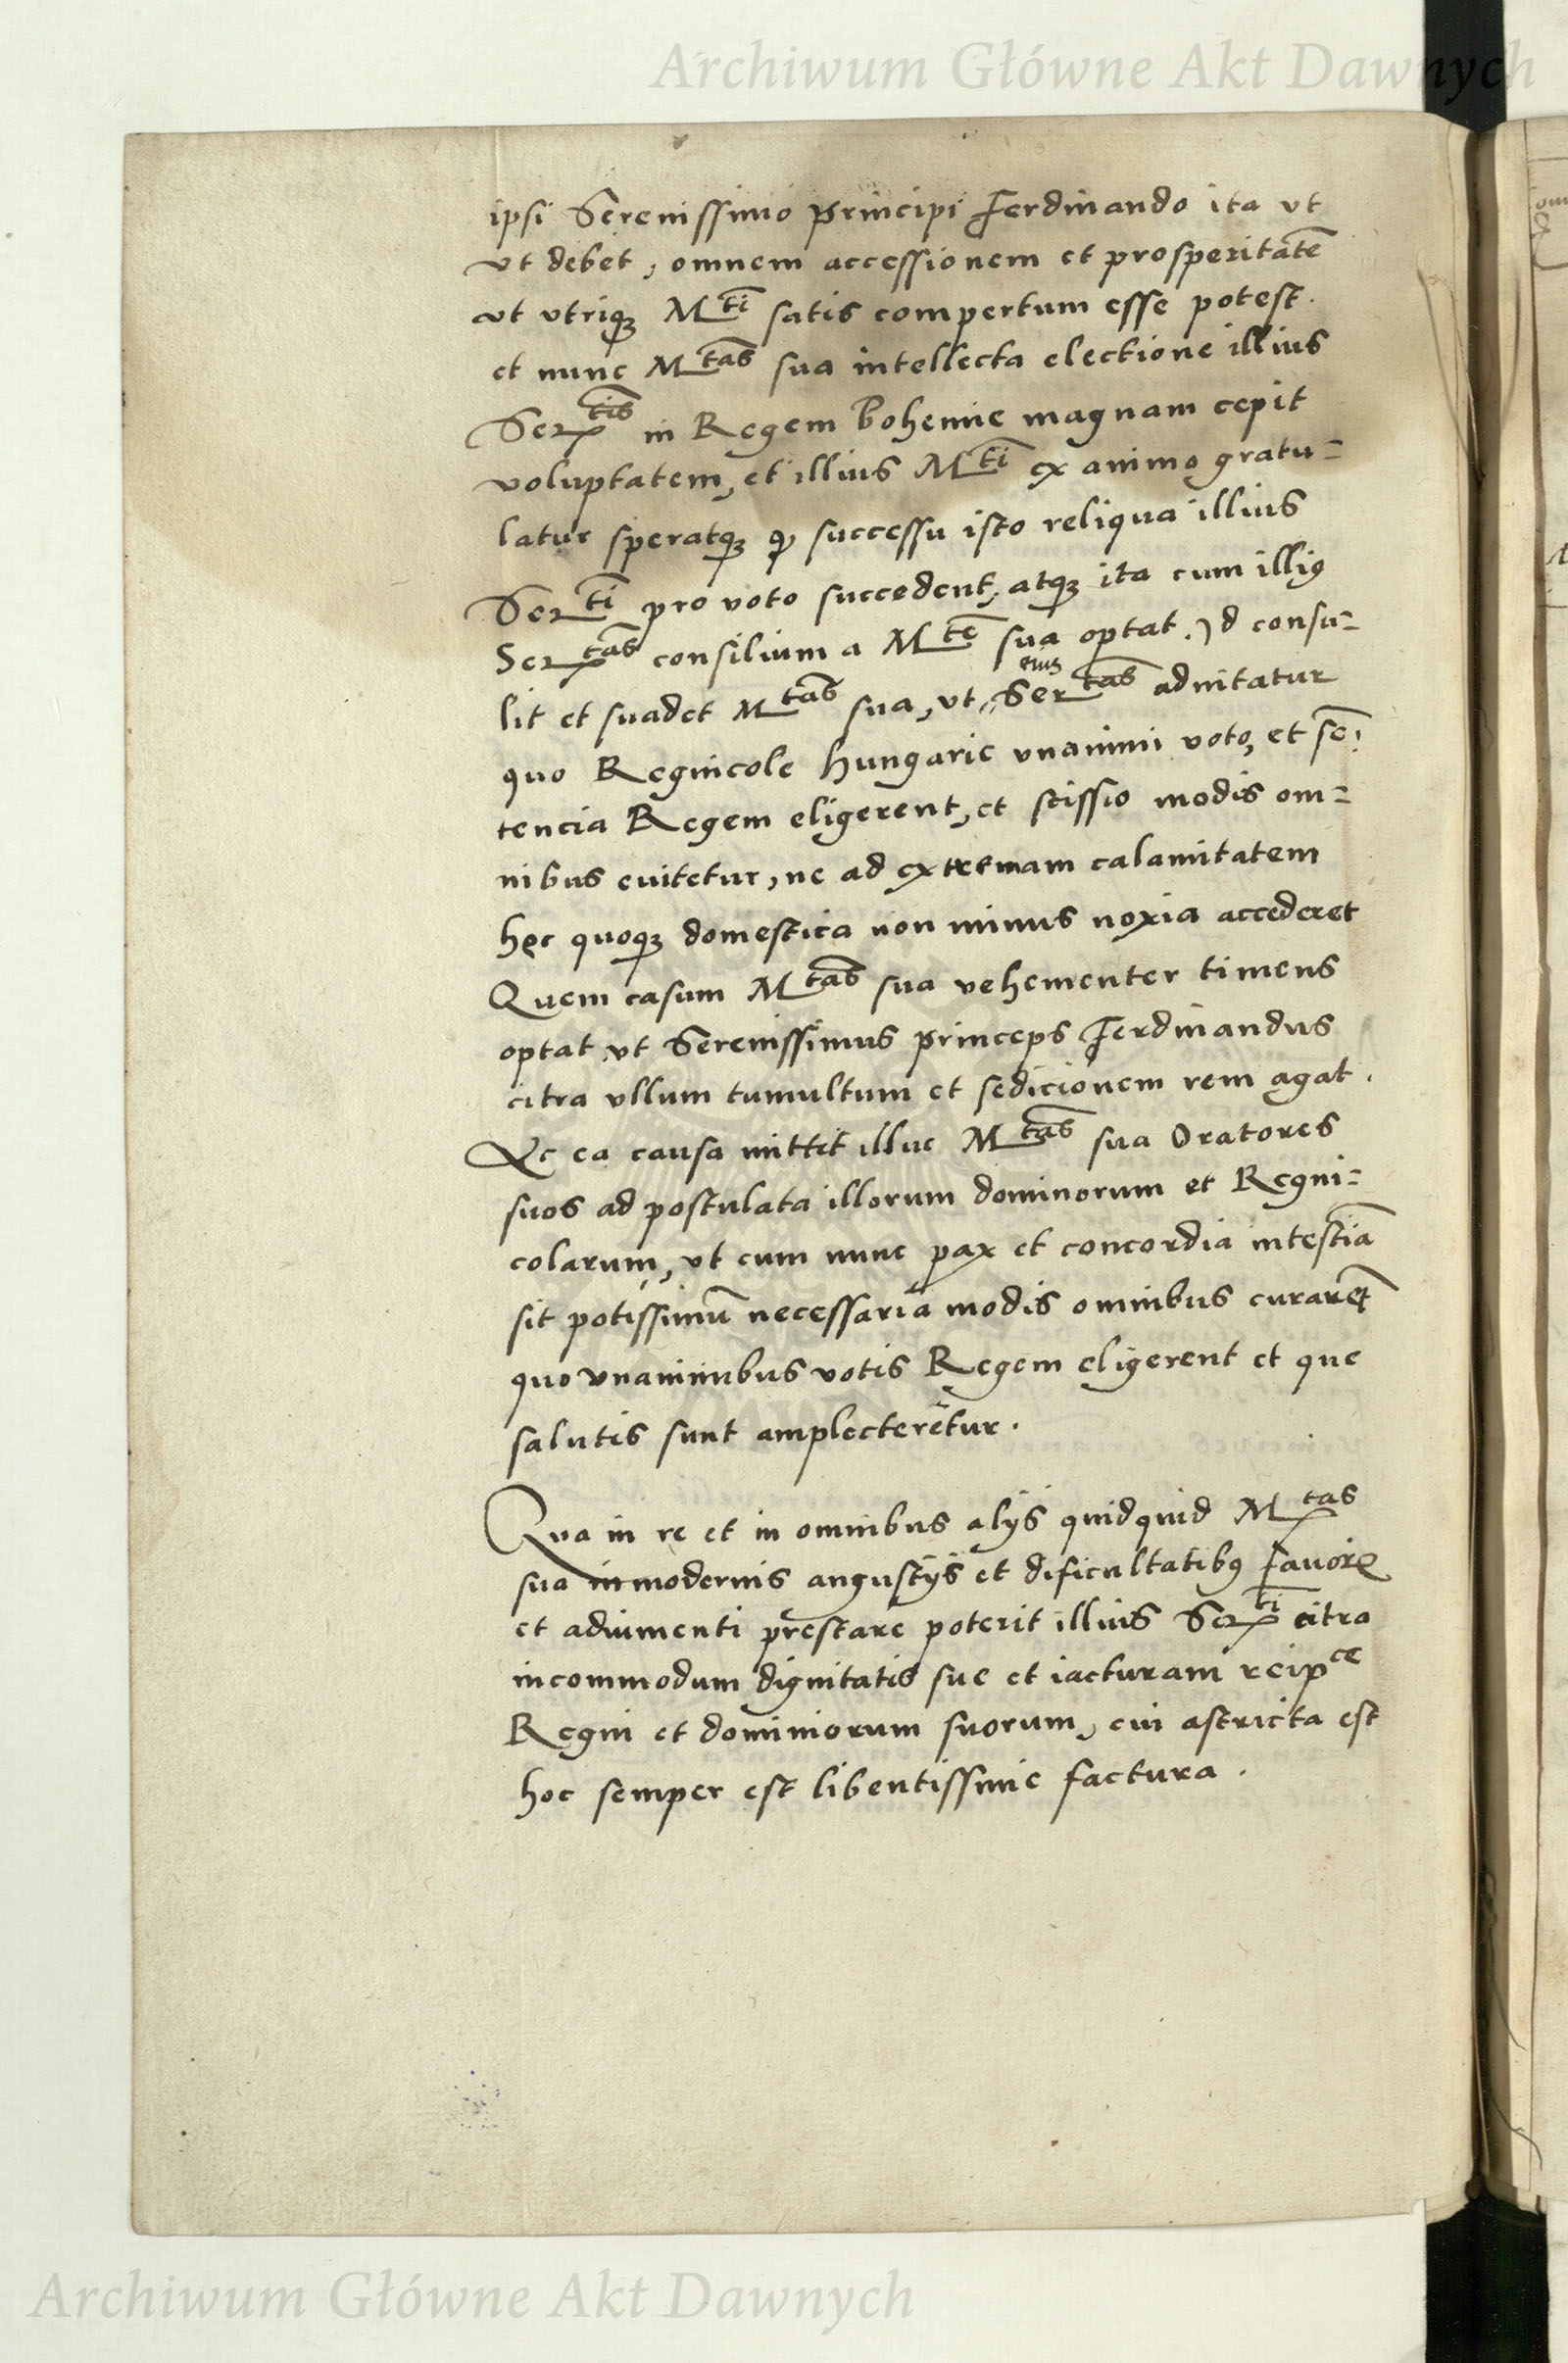 Archiwum Główne Akt Dawnych
ipsi Serenissimo principi Ferdinando ita vt
vt debet, omnem accessionem et prosperitatē
vt vtriqꝫ Mti satis compertum esse potest.
et nunc Mtas sua intellecta electione illius
Sertis in Regem Bohemie magnam cepit
voluptatem, et illius Mti ex animo gratu=
latur speratqꝫ ꝙ successu isto reliqua illius
Serti pro voto succedent, atqꝫ ita cum illiꝰ
Sertas consilium a Mte sua optat. Id consu=
lit et suadet Mtas sua, vt eius Sertas adnitatur
quo Regnicole Hungarie vnanimi voto, et sē:
tencia Regem eligerent, et scissio modis om=
nibus euitetur, ne ad extremam calamitatem
hęc quoqꝫ domestica non minus noxia accederet
Quem casum Mtas sua vehementer timens
optat vt Serenissimus princeps Ferdinandus
citra vllum tumultum et sedicionem rem agat.
Ac ea causa mittit illuc Mtas sua Oratores
suos ad postulata illorum dominorum et Regni=
colarum, vt cum nunc pax et concordia intestīa
sit potissimū necessaria modis omnibus curarēt
quo vnanimibus votis Regem eligerent et que
salutis sunt amplecterētur.
Qua in re et in omnibus alijs quidquid Mtas
sua in modernis angustijs et dificultatibꝰ fauoris
et adiumenti prestare poterit illius Serti citra
incommodum dignitatis sue et iacturam reipce
Regni et dominiorum suorum, cui astricta est
hoc semper est libentissime factura.
Archiwum Główne Akt Dawnych